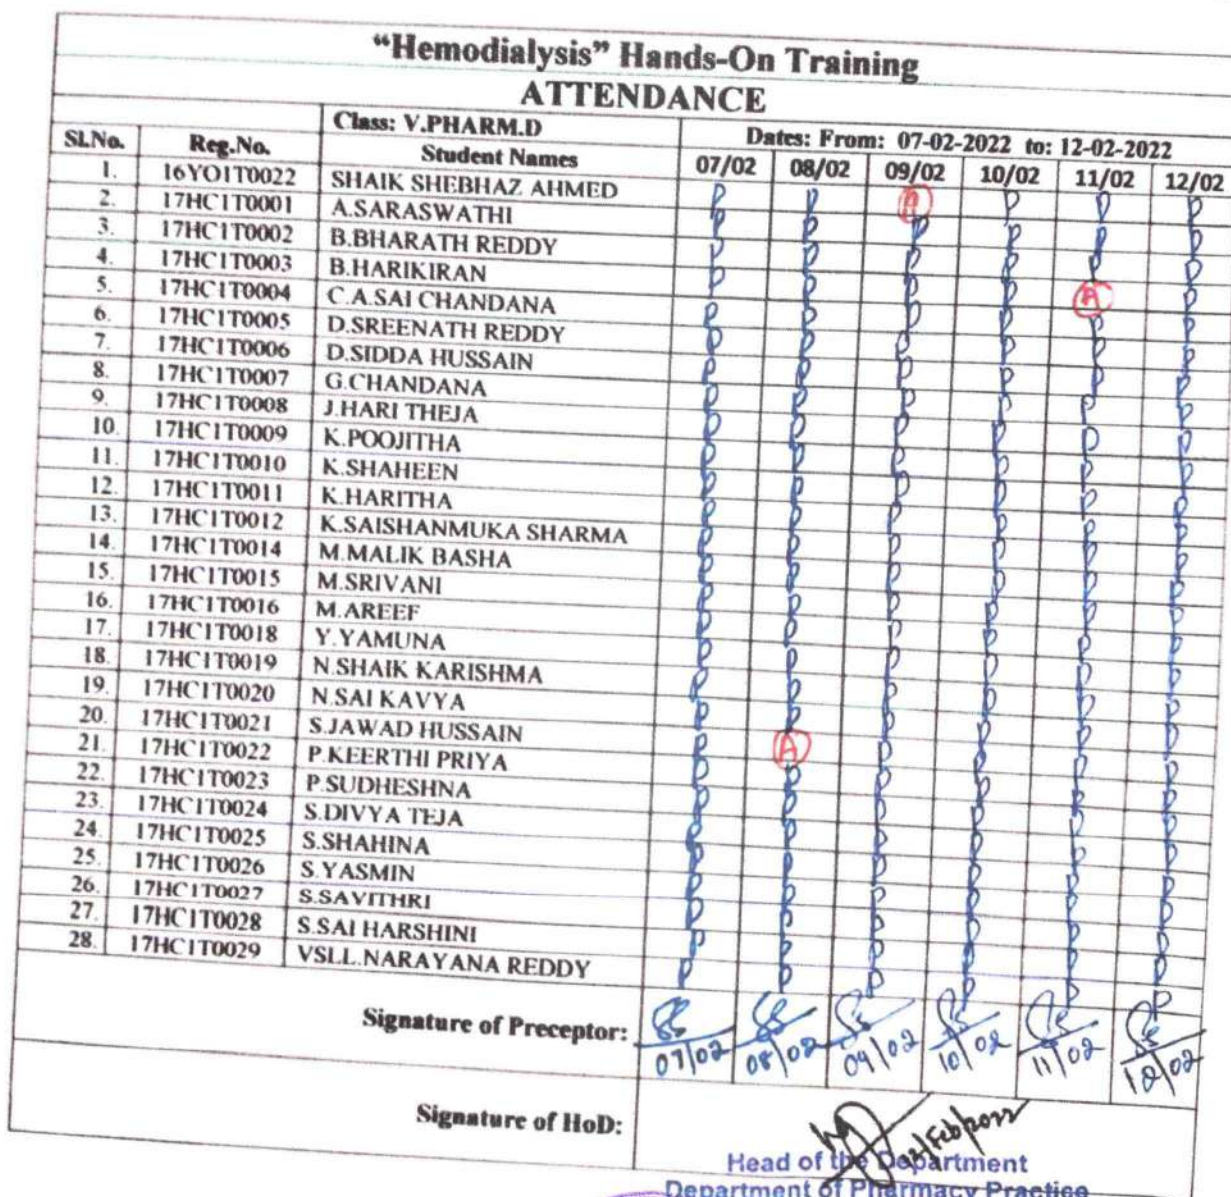 “Hemodialysis” Hands-On Training
ATTENDANCE
Class: V.PHARM.D Dates: From: 07-02-2022 to: 12-02-2022
Sl.No. Reg.No. Student Names 07/02 08/02 09/02 10/02 11/02 12/02
1. 16YO1T0022 SHAIK SHEBHAZ AHMED P P A P P P
2. 17HC1T0001 A.SARASWATHI P P P P P P
3. 17HC1T0002 B.BHARATH REDDY P P P P P P
4. 17HC1T0003 B.HARIKIRAN P P P P A P
5. 17HC1T0004 C.A.SAI CHANDANA P P P P P P
6. 17HC1T0005 D.SREENATH REDDY P P P P P P
7. 17HC1T0006 D.SIDDA HUSSAIN P P P P P P
8. 17HC1T0007 G.CHANDANA P P P P P P
9. 17HC1T0008 J.HARI THEJA P P P P P P
10. 17HC1T0009 K.POOJITHA P P P P P P
11. 17HC1T0010 K.SHAHEEN P P P P P P
12. 17HC1T0011 K.HARITHA P P P P P P
13. 17HC1T0012 K.SAISHANMUKA SHARMA P P P P P P
14. 17HC1T0014 M.MALIK BASHA P P P P P P
15. 17HC1T0015 M.SRIVANI P P P P P P
16. 17HC1T0016 M.AREEF P P P P P P
17. 17HC1T0018 Y.YAMUNA P P P P P P
18. 17HC1T0019 N.SHAIK KARISHMA P P P P P P
19. 17HC1T0020 N.SAI KAVYA P P P P P P
20. 17HC1T0021 S.JAWAD HUSSAIN P P P P P P
21. 17HC1T0022 P.KEERTHI PRIYA P A P P P P
22. 17HC1T0023 P.SUDHESHNA P P P P P P
23. 17HC1T0024 S.DIVYA TEJA P P P P P P
24. 17HC1T0025 S.SHAHINA P P P P P P
25. 17HC1T0026 S.YASMIN P P P P P P
26. 17HC1T0027 S.SAVITHRI P P P P P P
27. 17HC1T0028 S.SAI HARSHINI P P P P P P
28. 17HC1T0029 VSLL.NARAYANA REDDY P P P P P P
Signature of Preceptor: 07/02 08/02 09/02 10/02 11/02 12/02
Signature of HoD: 12/Feb/2022
Head of the Department
Department of Pharmacy Practice